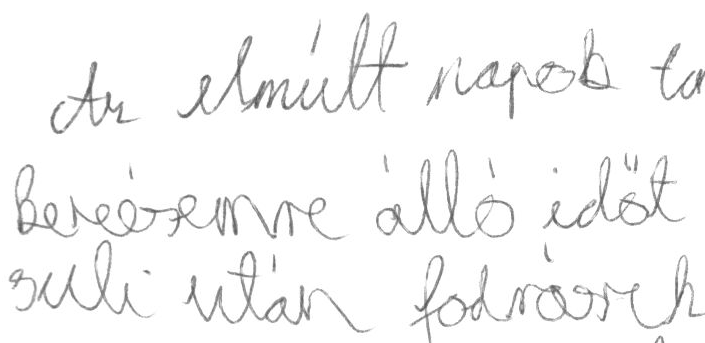 Az elmúlt napok ta
kezésemre álló időt
suli után fodrászh